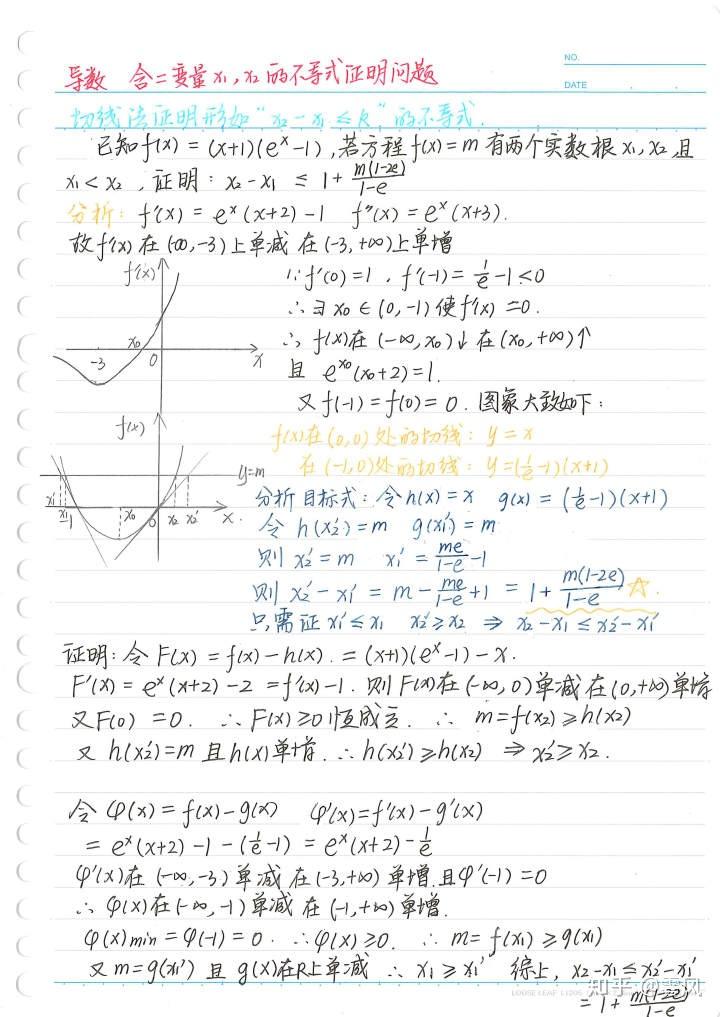 NO.
导数 含二变量x₁,x₂的不等式证明问题
DATE
切线法证明形如“x₂-x₁≤k”的不等式.
已知f(x)=(x+1)(eˣ-1),若方程f(x)=m有两个实数根x₁,x₂,且
x₁<x₂,证明:x₂-x₁ ≤ 1+m(1-2e)/(1-e)
分析:f'(x)=eˣ(x+2)-1 f''(x)=eˣ(x+3).
故f'(x)在(-∞,-3)上单减 在(-3,+∞)上单增
∵f'(0)=1,f'(-1)=1/e-1<0
∴∃x₀∈(0,-1)使f'(x)=0.
∴f(x)在(-∞,x₀)↓在(x₀,+∞)↑
且 e^x₀(x₀+2)=1.
又f(-1)=f(0)=0.图象大致如下:
f'(x)
x₀
-3
0
x
f(x)
y=m
x₁'
x₁
-1
x₀
0
x₂
x₂'
x.
f(x)在(0,0)处的切线:y=x
在(-1,0)处的切线:y=(1/e-1)(x+1)
分析目标式:令h(x)=x g(x)=(1/e-1)(x+1)
令 h(x₂')=m g(x₁')=m
则 x₂'=m x₁'=me/(1-e)-1
则 x₂'-x₁'=m-me/(1-e)+1=1+m(1-2e)/(1-e)☆.
只需证x₁'≤x₁ x₂'≥x₂ ⇒ x₂-x₁≤x₂'-x₁'
证明:令F(x)=f(x)-h(x).=(x+1)(eˣ-1)-x.
F'(x)=eˣ(x+2)-2=f'(x)-1.则F(x)在(-∞,0)单减在(0,+∞)单增
又F(0)=0. ∴F(x)≥0恒成立. ∴ m=f(x₂)≥h(x₂)
又 h(x₂')=m 且h(x)单增.∴h(x₂')≥h(x₂) ⇒ x₂'≥x₂.
令φ(x)=f(x)-g(x) φ'(x)=f'(x)-g'(x)
=eˣ(x+2)-1-(1/e-1)=eˣ(x+2)-1/e
φ'(x)在(-∞,-3)单减 在(-3,+∞)单增.且φ'(-1)=0
∴ φ(x)在(-∞,-1)单减 在(-1,+∞)单增.
φ(x)min=φ(-1)=0. ∴φ(x)≥0. ∴ m=f(x₁)≥g(x₁)
又m=g(x₁') 且 g(x)在R上单减 ∴ x₁≥x₁' 综上,x₂-x₁≤x₂'-x₁'
=1+m(1-2e)/(1-e).
LOOSE LEAF
知乎